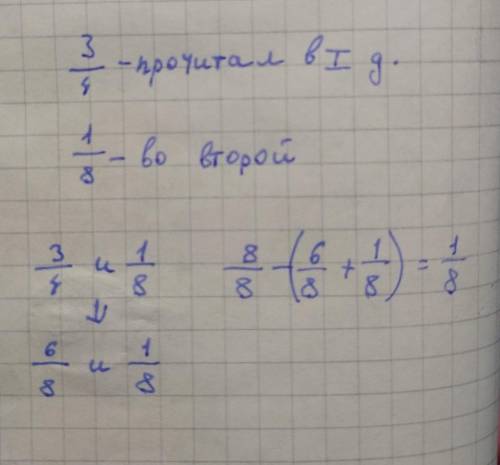 3/4 - прочитал в I д.
1/8 - во второй
3/4 и 1/8
↓
6/8 и 1/8
8/8 - (6/8 + 1/8) = 1/8